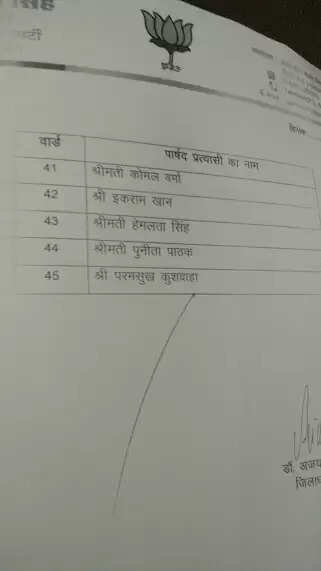 सिंह
दिनांक
वार्ड पार्षद प्रत्याशी का नाम
41 श्रीमती कोमल वर्मा
42 श्री इकराम खान
43 श्रीमती हेमलता सिंह
44 श्रीमती पुनीता पाठक
45 श्री परमसुख कुशवाहा
डॉ. अजय